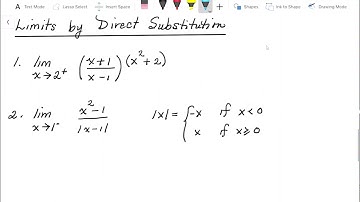 Text Mode
Lasso Select
Insert Space
Shapes
Ink to Shape
Drawing Mode
Limits by Direct Substitution
1. lim x→2⁺ ((x+1)/(x-1)) (x²+2)
2. lim x→1⁻ (x²-1)/|x-1| |x| = { -x if x<0
x if x≥0